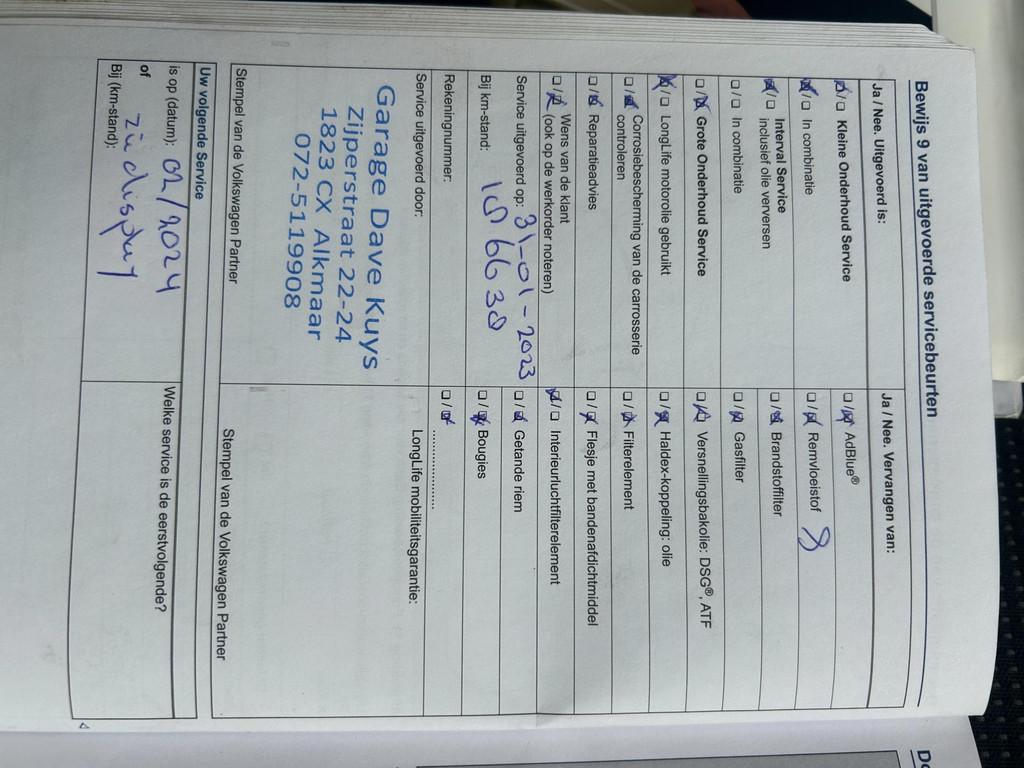 Bewijs 9 van uitgevoerde servicebeurten
Ja / Nee. Uitgevoerd is:
☒/☐ Kleine Onderhoud Service
☒/☐ In combinatie
☒/☐ Interval Service
inclusief olie verversen
☐/☐ In combinatie
☐/☒ Grote Onderhoud Service
☒/☐ LongLife motorolie gebruikt
☐/☒ Corrosiebescherming van de carrosserie
controleren
☐/☒ Reparatieadvies
☐/☒ Wens van de klant
(ook op de werkorder noteren)
Service uitgevoerd op: 31-01-2023
Bij km-stand:
Rekeningnummer:
Service uitgevoerd door:
Garage Dave Kuys
Zijperstraat 22-24
1823 CX Alkmaar
072-5119908
Stempel van de Volkswagen Partner
Ja / Nee. Vervangen van:
☐/☒ AdBlue®
☐/☒ Remvloeistof
☐/☒ Brandstoffilter
☐/☒ Gasfilter
☐/☒ Versnellingsbakolie: DSG®, ATF
☐/☒ Haldex-koppeling: olie
☐/☒ Filterelement
☐/☒ Flesje met bandenafdichtmiddel
☒/☐ Interieurluchtfilterelement
☐/☒ Getande riem
☐/☒ Bougies
☐/☒ ....................
LongLife mobiliteitsgarantie:
Stempel van de Volkswagen Partner
Uw volgende Service
is op (datum): 02/2024
of
Bij (km-stand): zie display
Welke service is de eerstvolgende?